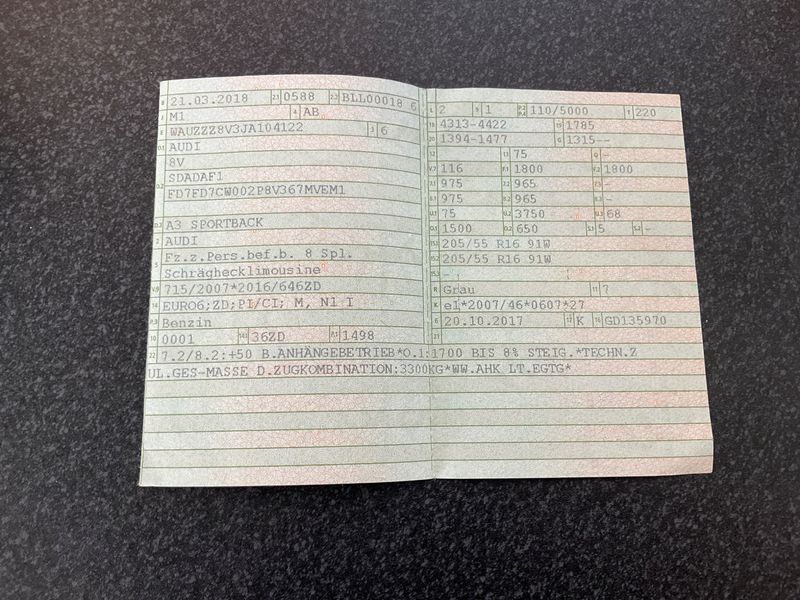 B 21.03.2018 2.1 0588 2.2 BLL00018 6
J M1 4 AB
E WAUZZZ8V3JA104122 3 6
D.1 AUDI
8V
D.2 SDADAF1
FD7FD7CW002P8V367MVEM1
D.3 A3 SPORTBACK
2 AUDI
5 Fz.z.Pers.bef.b. 8 Spl.
Schräghecklimousine
V.9 715/2007*2016/646ZD
14 EURO6;ZD;PI/CI; M, N1 I
P.3 Benzin
10 0001 14.1 36ZD P.1 1498
L 2 9 1 P.2 P.4 110/5000 T 220
18 4313-4422 19 1785
20 1394-1477 G 1315--
12 - 13 75 Q -
V.7 116 F.1 1800 F.2 1800
7.1 975 7.2 965 7.3 -
8.1 975 8.2 965 8.3 -
U.1 75 U.2 3750 U.3 68
O.1 1500 O.2 650 S.1 5 S.2 -
15.1 205/55 R16 91W
15.2 205/55 R16 91W
15.3 -
R Grau 11 7
K e1*2007/46*0607*27
6 20.10.2017 17 K 16 GD135970
21
22 7.2/8.2:+50 B.ANHÄNGEBETRIEB*O.1:1700 BIS 8% STEIG.*TECHN.Z
UL.GES-MASSE D.ZUGKOMBINATION:3300KG*WW.AHK LT.EGTG*